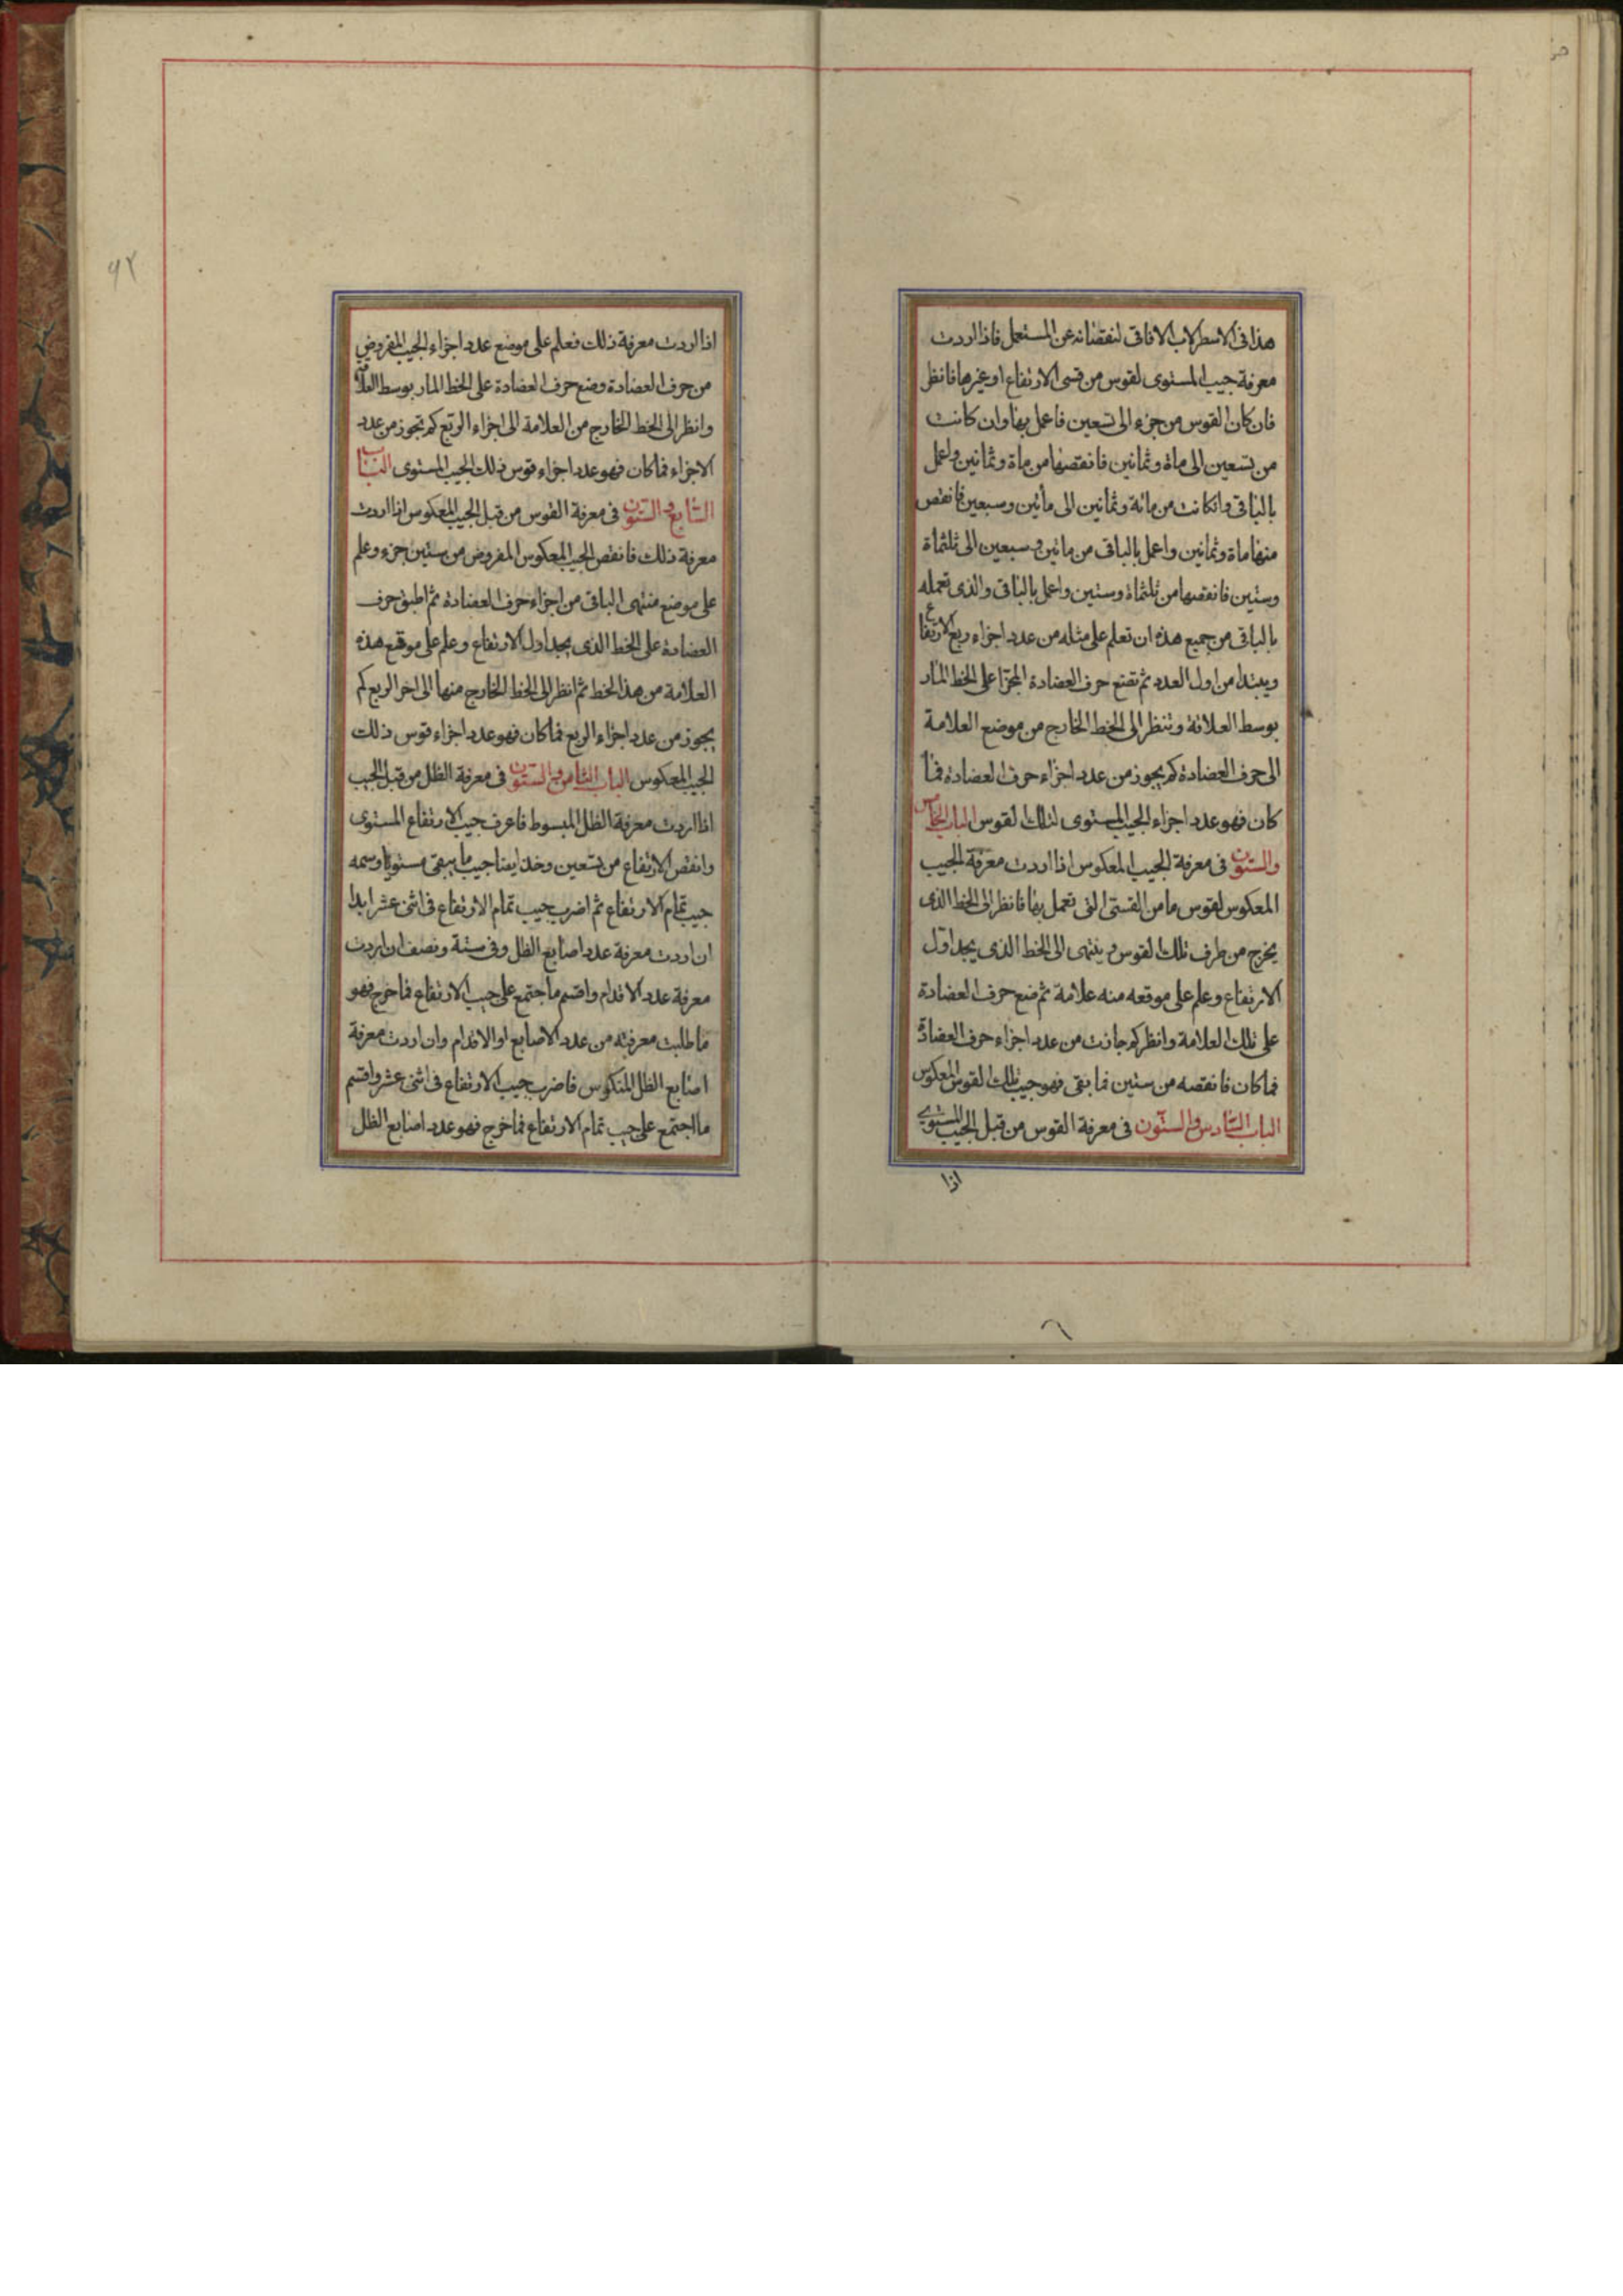 هذا فى الاسطرلاب الافاقى لنقصانه عن المستعمل فاذا اردت
معرفة جيب المستوى لقوس من قسى الارتفاع او غيرها فانظر
فان كان القوس من جزء الى تسعين فاعمل بها وان كانت
من تسعين الى ماة وثمانين فانقصها من ماة وثمانين واعمل
بالباقى وانكانت من مائة وثمانين الى مأتين وسبعين فانقص
منها ماة وثمانين واعمل بالباقى من مايتين وسبعين الى ثلثماة
وستين فانقصها من ثلثماة وستين واعمل بالباقى والذى تعمله
بالباقى من جميع هذه ان تعلم على مثله من عدد اجزاء ربع الارتفاع
ويبتدا من اول العدد ثم تضع حرف العضادة المجزا على الخط المار
بوسط العلاقة وتنظر الى الخط الخارج من موضع العلامة
الى حرف العضادة كم يجوز من عدد اجزاء حرف العضادة فما
كان فهو عدد اجزاء الجيب المستوى لتلك القوس الباب الخامس
والستون فى معرفة الجيب المعكوس اذا اردت معرفة الجيب
المعكوس لقوس ما من القسى التى تعمل بها فانظر الى الخط الذى
يخرج من طرف تلك القوس وينتهى الى الخط الذى يجد اول
الارتفاع وعلم على موقعه منه علامة ثم ضع حرف العضادة
على تلك العلامة وانظر كم جازت من عدد اجزاء حرف العضادة
فما كان فانقصه من ستين فما بقى فهو جيب تلك القوس المعكوس
الباب السادس والستون فى معرفة القوس من قبل الجيب المستوى
اذا
۹۲
اذا اردت معرفة ذلك فعلم على موضع عدد اجزاء الجيب المفروض
من حرف العضادة وضع حرف العضادة على الخط المار بوسط العلاقة
وانظر الى الخط الخارج من العلامة الى اجزاء الربع كم تجوز من عدد
الاجزاء فما كان فهو عدد اجزاء قوس ذلك الجيب المستوى الباب
السابع والستون فى معرفة القوس من قبل الجيب المعكوس اذا اردت
معرفة ذلك فانقص الجيب المعكوس المفروض من ستين جزء وعلم
على موضع منتهى الباقى من اجزاء حرف العضادة ثم اطبق حرف
العضادة على الخط الذى يجد اول الارتفاع وعلم على موقع هذه
العلامة من هذا الخط ثم انظر الى الخط الخارج منها الى اخر الربع كم
يجوز من عدد اجزاء الربع فما كان فهو عدد اجزاء قوس ذلك
الجيب المعكوس الباب الثامن والستون فى معرفة الظل من قبل الجيب
اذا اردت معرفة الظل المبسوط فاعرف جيب الارتفاع المستوى
وانقص الارتفاع من تسعين وخذ ايضا جيب ما يبقى مستويا وسمه
جيب تمام الارتفاع ثم اضرب جيب تمام الارتفاع فى اثنى عشر ابدا
ان اردت معرفة عدد اصابع الظل وفى ستة ونصف ان اردت
معرفة عدد الاقدام واقسم ما اجتمع على جيب الارتفاع فما خرج فهو
ما طلبت معرفته من عدد الاصابع او الاقدام وان اردت معرفة
اصابع الظل المنكوس فاضرب جيب الارتفاع فى اثنى عشر واقسم
ما اجتمع على جيب تمام الارتفاع فما خرج فهو عدد اصابع الظل